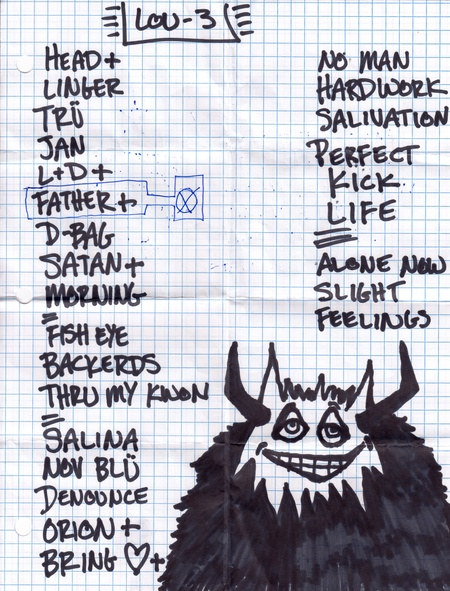 LOU-3
HEAD+
LINGER
TRÜ
JAN
L+D+
FATHER+
D-BAG
SATAN+
MORNING
FISH EYE
BACKERDS
THRU MY KWON
SALINA
NOV BLÜ
DENOUNCE
ORION +
BRING ♡+
NO MAN
HARDWORK
SALIVATION
PERFECT
KICK
LIFE
ALONE NOW
SLIGHT
FEELINGS